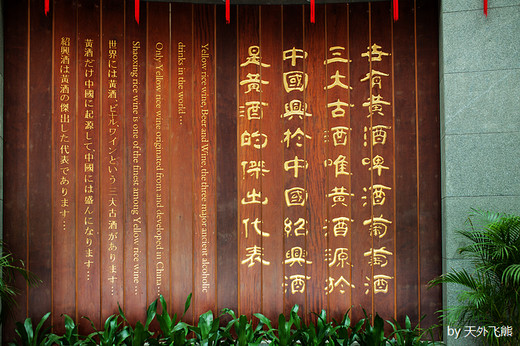 古有黄酒啤酒葡萄酒
三大古酒唯黄酒源於
中國興於中國紹興酒
是黄酒的傑出代表
Yellow rice wine, Beer and Wine, the three major ancient alcoholic
drinks in the world…
Only Yellow rice wine originated from and developed in China…
Shaoxing rice wine is one of the finest among Yellow rice wine…
世界には黄酒、ビールワインという 三大古酒があります…
黄酒だけ中國に起源して、中國には盛んになります…
紹興酒は黄酒の傑出した代表であります…
by 天外飞熊